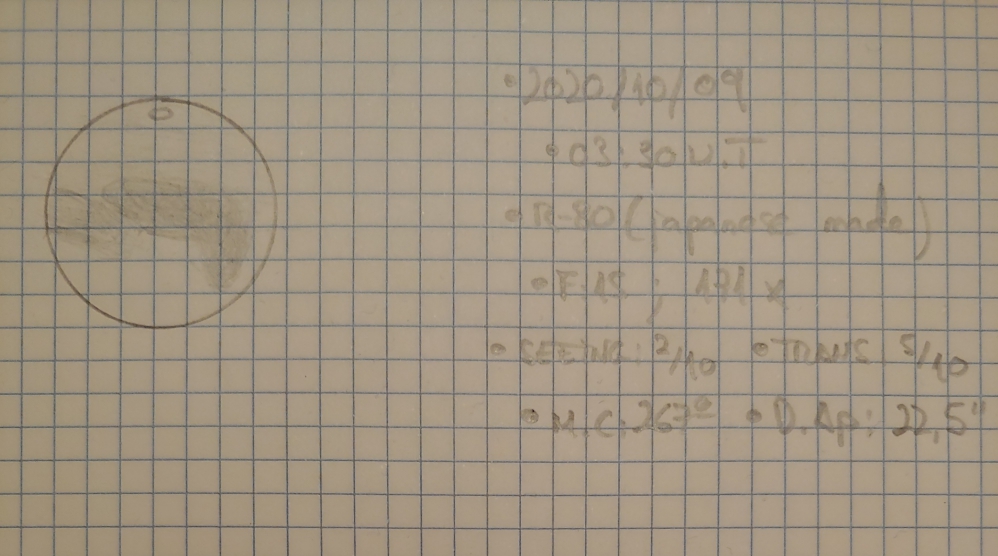 •2020/10/09
•03:30 U.T
•R-80 (japanese made)
•F:15 ; 171 x
•SEEING: 2/10 •TRANS: 5/10
•M.C: 267º •D.Ap: 22,5"